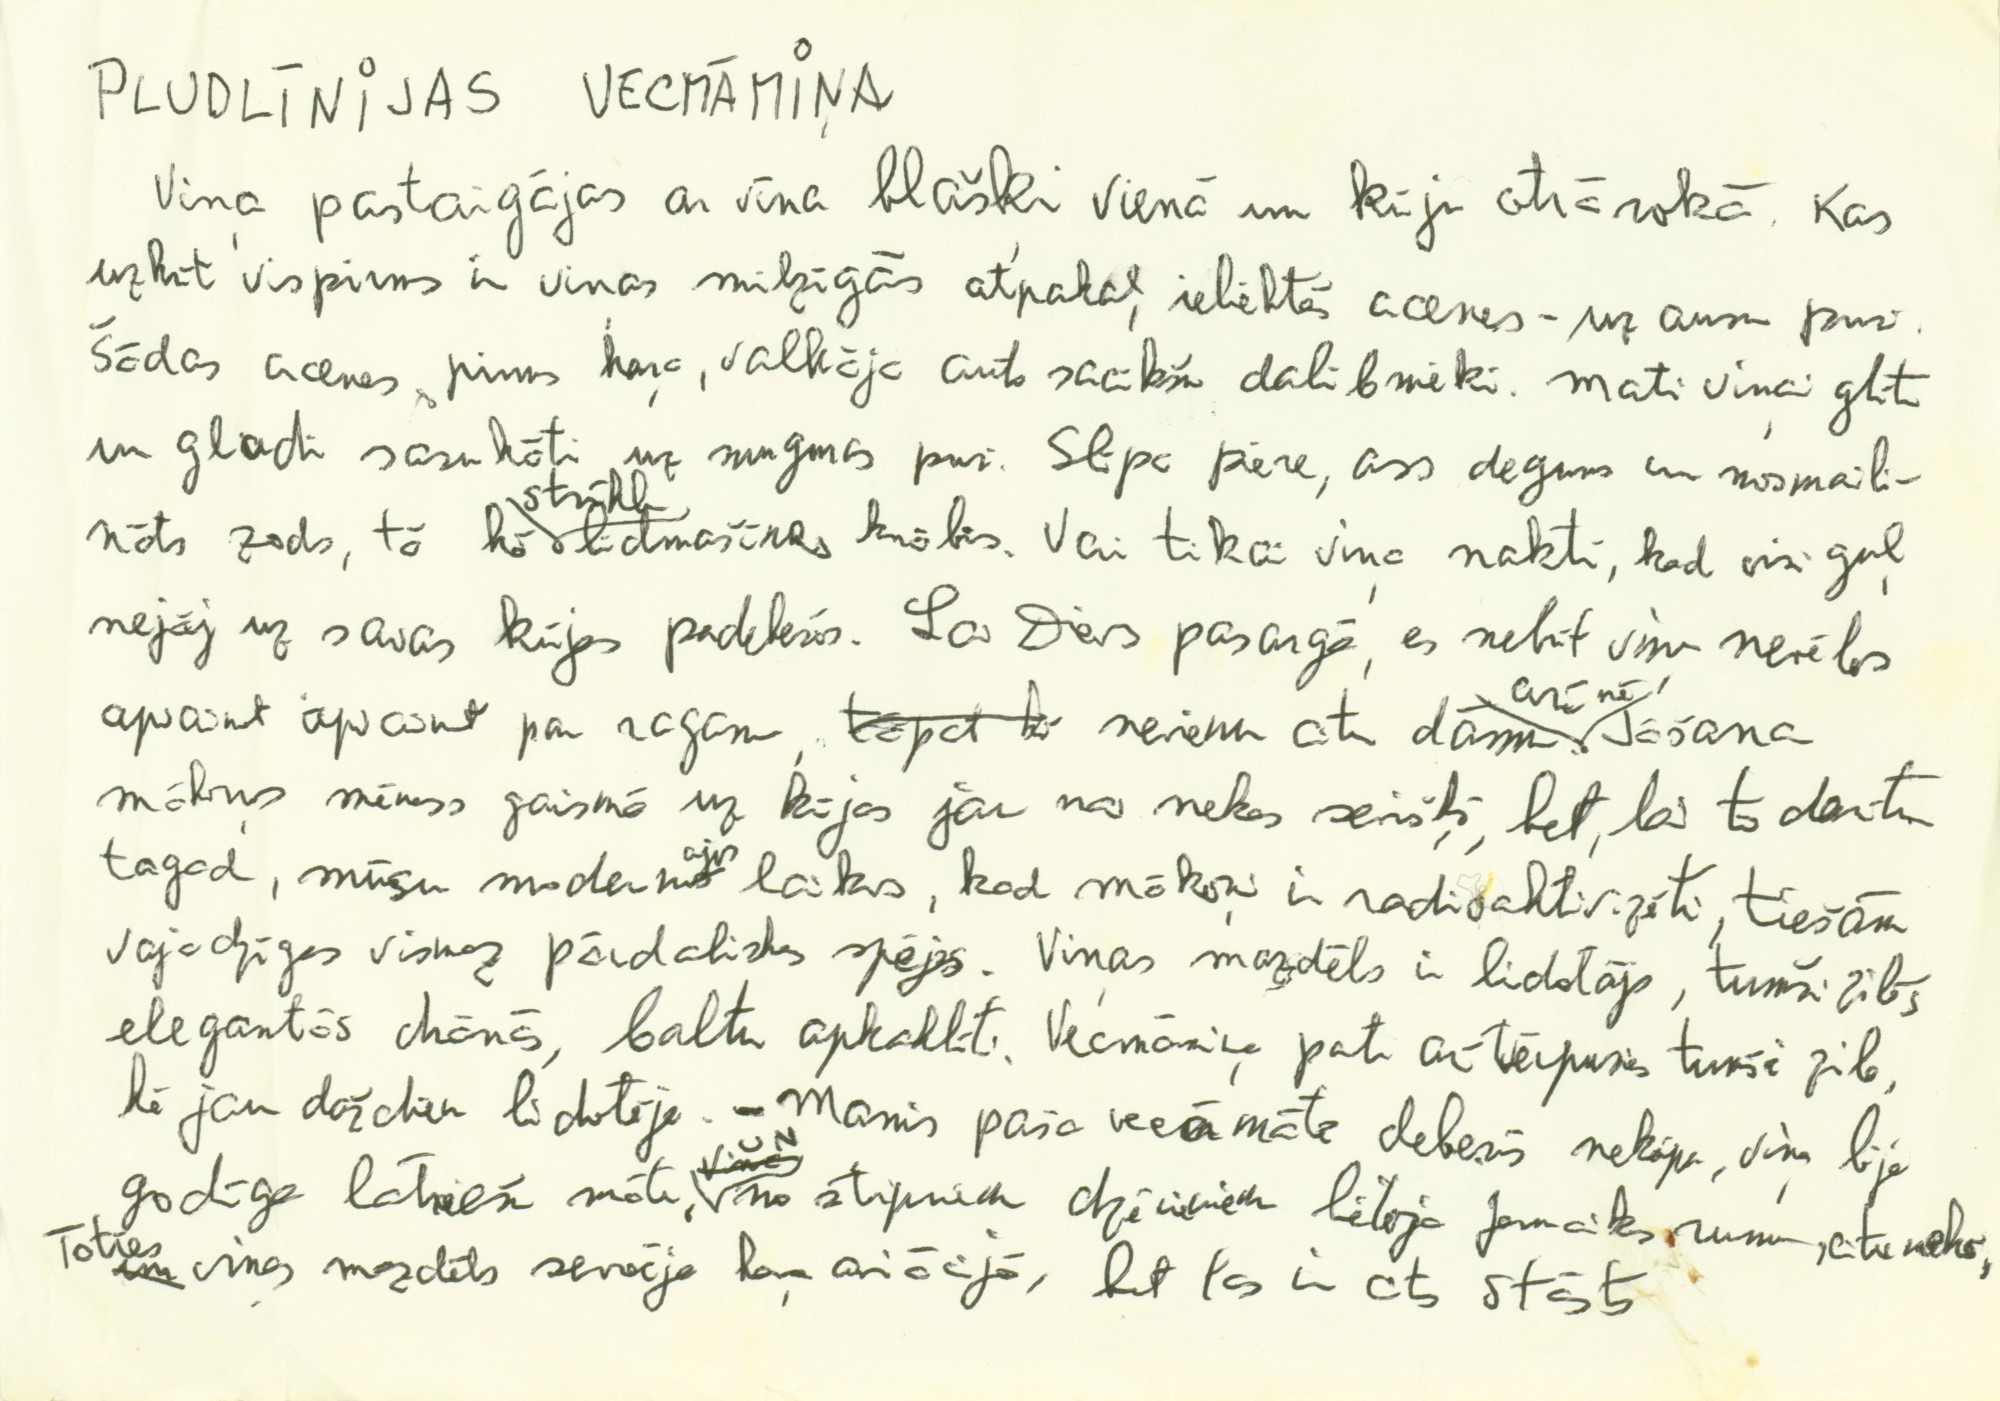 PLUDLĪNIJAS VECMĀMIŅA
Viņa pastaigājas ar vīna blašķi vienā un kūju otrā rokā. Kas
uzkrīt vispirms ir viņas milzīgās atpakaļ ieliektās acenes - uz ausu pusi.
Šādas acenes, pirms kara, valkāja auto sacīkšu dalibnieki. Mati viņai gliti
un gludi sasukāti uz muguras pusi. Slīpa piere, ass deguns un nosmaili-
nāts zods, tā kā strūkl lidmašīnas knābis. Vai tikai viņa naktī, kad visi guļ,
nejāj uz savas kūjas padebešos. Lai Dievs pasargā, es nebūt viņu nevēlos
apvainot apvainot par raganu, tāpat kā nevienu citu dāmu arī nē! Jāšana
mākoņos mēness gaismā uz kūjas jau nav nekas sevišķi, bet, lai to darītu
tagad, mūsu modernajos laikos, kad mākoņi ir radioaktivizēti, tiešām
vajadzīgas vismaz pārdabiskas spējas. Viņas mazdēls ir lidotājs, tumši zilās
elegantās drānās, baltu apkaklīti. Vecmāmiņa pati arī tērpusies tumši zilā,
kā jau dažchien lidotāja. - Manis paša vecāmāte debesīs nekāpa, viņa bija
godīga latviešu māte, UN no stipriem dzērieniem lietoja Jamaikas rumu, citu neko,
Toties viņas mazdēls sevēja kara aviācijā, bet tas ir cits stāsts